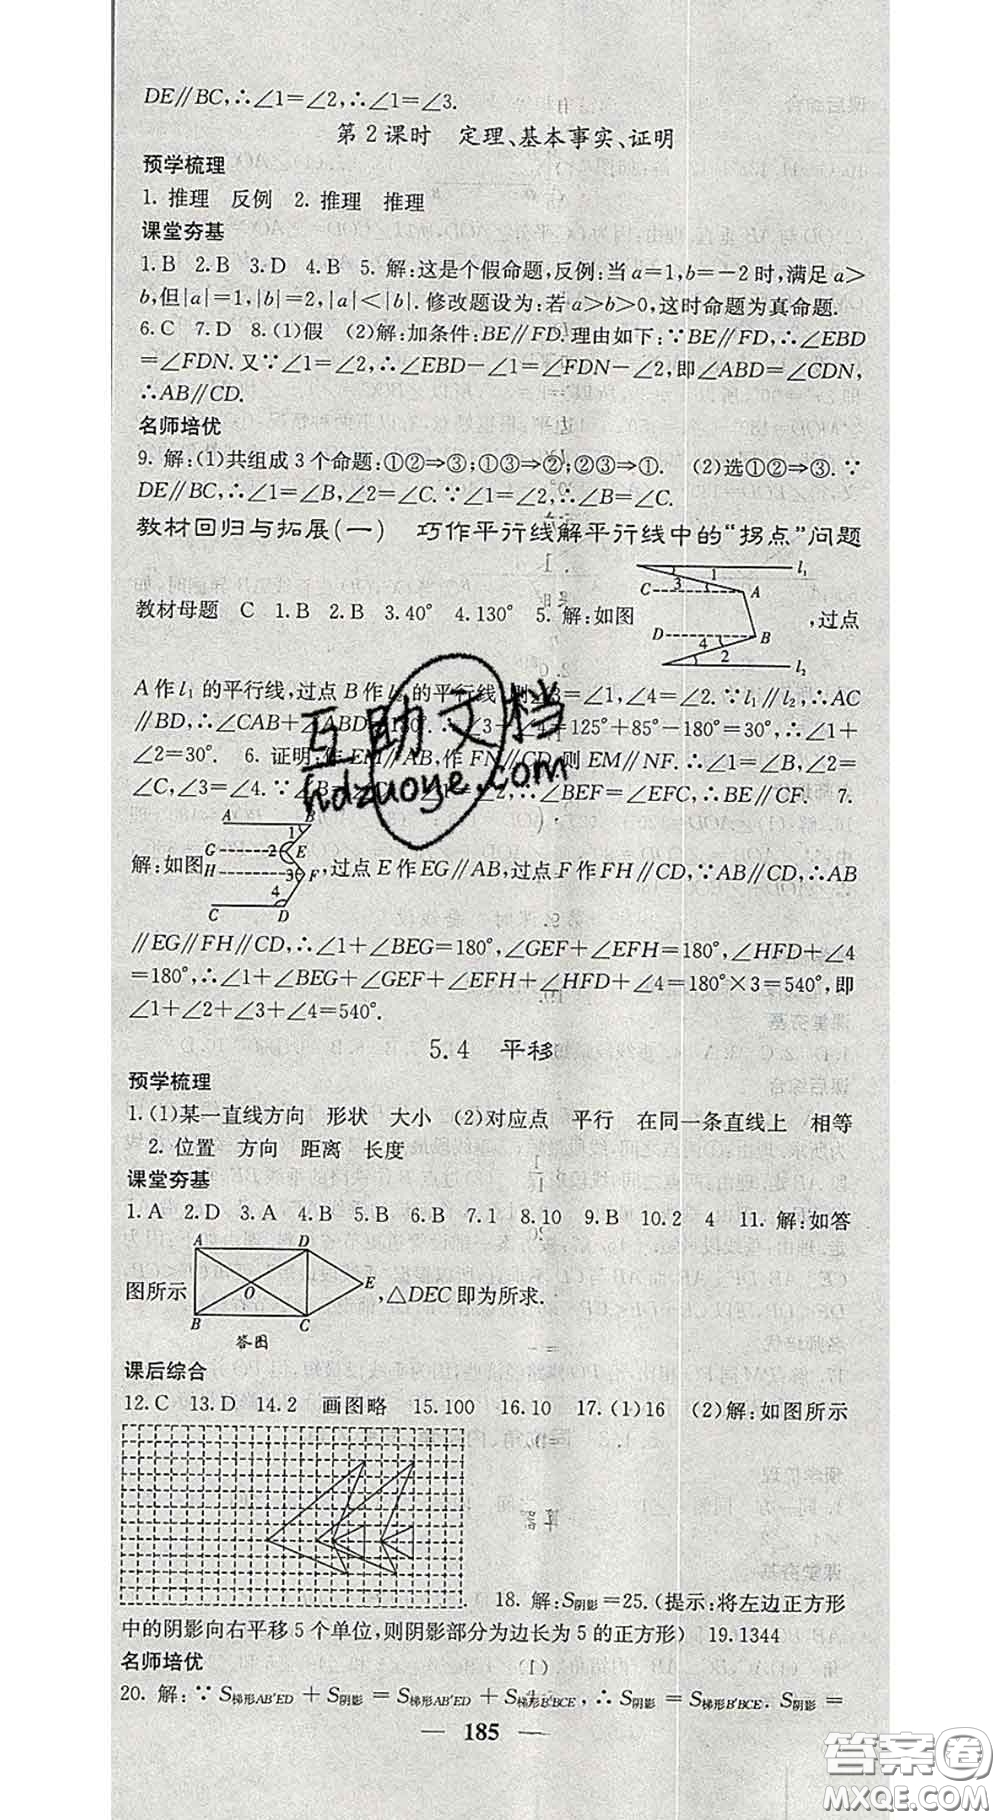 DE∥BC,∴∠1=∠2,∴∠1=∠3.
第2课时 定理、基本事实、证明
预学梳理
1. 推理 反例 2. 推理 推理
课堂夯基
1.B 2.B 3.D 4.B 5. 解:这是个假命题,反例:当a=1,b=-2时,满足a>
b,但|a|=1,|b|=2,|a|<|b|. 修改题设为:若a>b>0,这时命题为真命题.
6.C 7.D 8.(1)假 (2)解:加条件:BE∥FD.理由如下:∵BE∥FD,∴∠EBD
=∠FDN.又∵∠1=∠2,∴∠EBD-∠1=∠FDN-∠2,即∠ABD=∠CDN,
∴AB∥CD.
名师培优
9. 解:(1)共组成3个命题:①②⇒③;①③⇒②;②③⇒①. (2)选①②⇒③.∵
DE∥BC,∴∠1=∠B,∠2=∠C.∵∠1=∠2,∴∠B=∠C.
教材回归与拓展(一) 巧作平行线解平行线中的“拐点”问题
3 1 l₁
C A
教材母题 C 1.B 2.B 3.40° 4.130° 5. 解:如图 ,过点
D 4 B
2 l₂
A作l₁的平行线,过点B作l₂的平行线,则∠3=∠1,∠4=∠2.∵l₁∥l₂,∴AC
∥BD,∴∠CAB+∠ABD=180°.∴∠3+∠4=125°+85°-180°=30°,∴∠1+
∠2=30°. 6. 证明:作EM∥AB,作FN∥CD,则EM∥NF.∴∠1=∠B,∠2=
∠C,∠3=∠4.∵∠B=∠C,∴∠1=∠2,∴∠BEF=∠EFC,∴BE∥CF. 7.
A B
1
G 2 E
解:如图 ,过点E作EG∥AB,过点F作FH∥CD,∵AB∥CD,∴AB
H 3 F
4
C D
∥EG∥FH∥CD,∴∠1+∠BEG=180°,∠GEF+∠EFH=180°,∠HFD+∠4
=180°,∴∠1+∠BEG+∠GEF+∠EFH+∠HFD+∠4=180°×3=540°,即
∠1+∠2+∠3+∠4=540°.
5.4 平移
预学梳理
1.(1)某一直线方向 形状 大小 (2)对应点 平行 在同一条直线上 相等
2. 位置 方向 距离 长度
课堂夯基
1.A 2.D 3.A 4.B 5.B 6.B 7.1 8.10 9.B 10.2 4 11. 解:如答
A D
图所示 O E ,△DEC即为所求.
B C
答图
课后综合
12.C 13.D 14.2 画图略 15.100 16.10 17.(1)16 (2)解:如图所示
18. 解:S阴影=25.(提示:将左边正方形
中的阴影向右平移5个单位,则阴影部分为边长为5的正方形) 19.1344
名师培优
20. 解:∵S梯形AB′ED+S阴影=S梯形AB′ED+S梯形B′BCE,∴S阴影=S梯形B′BCE.S阴影=
— 185 —
互助文档
hdzuoye.com
答案圈
MXQE.COM